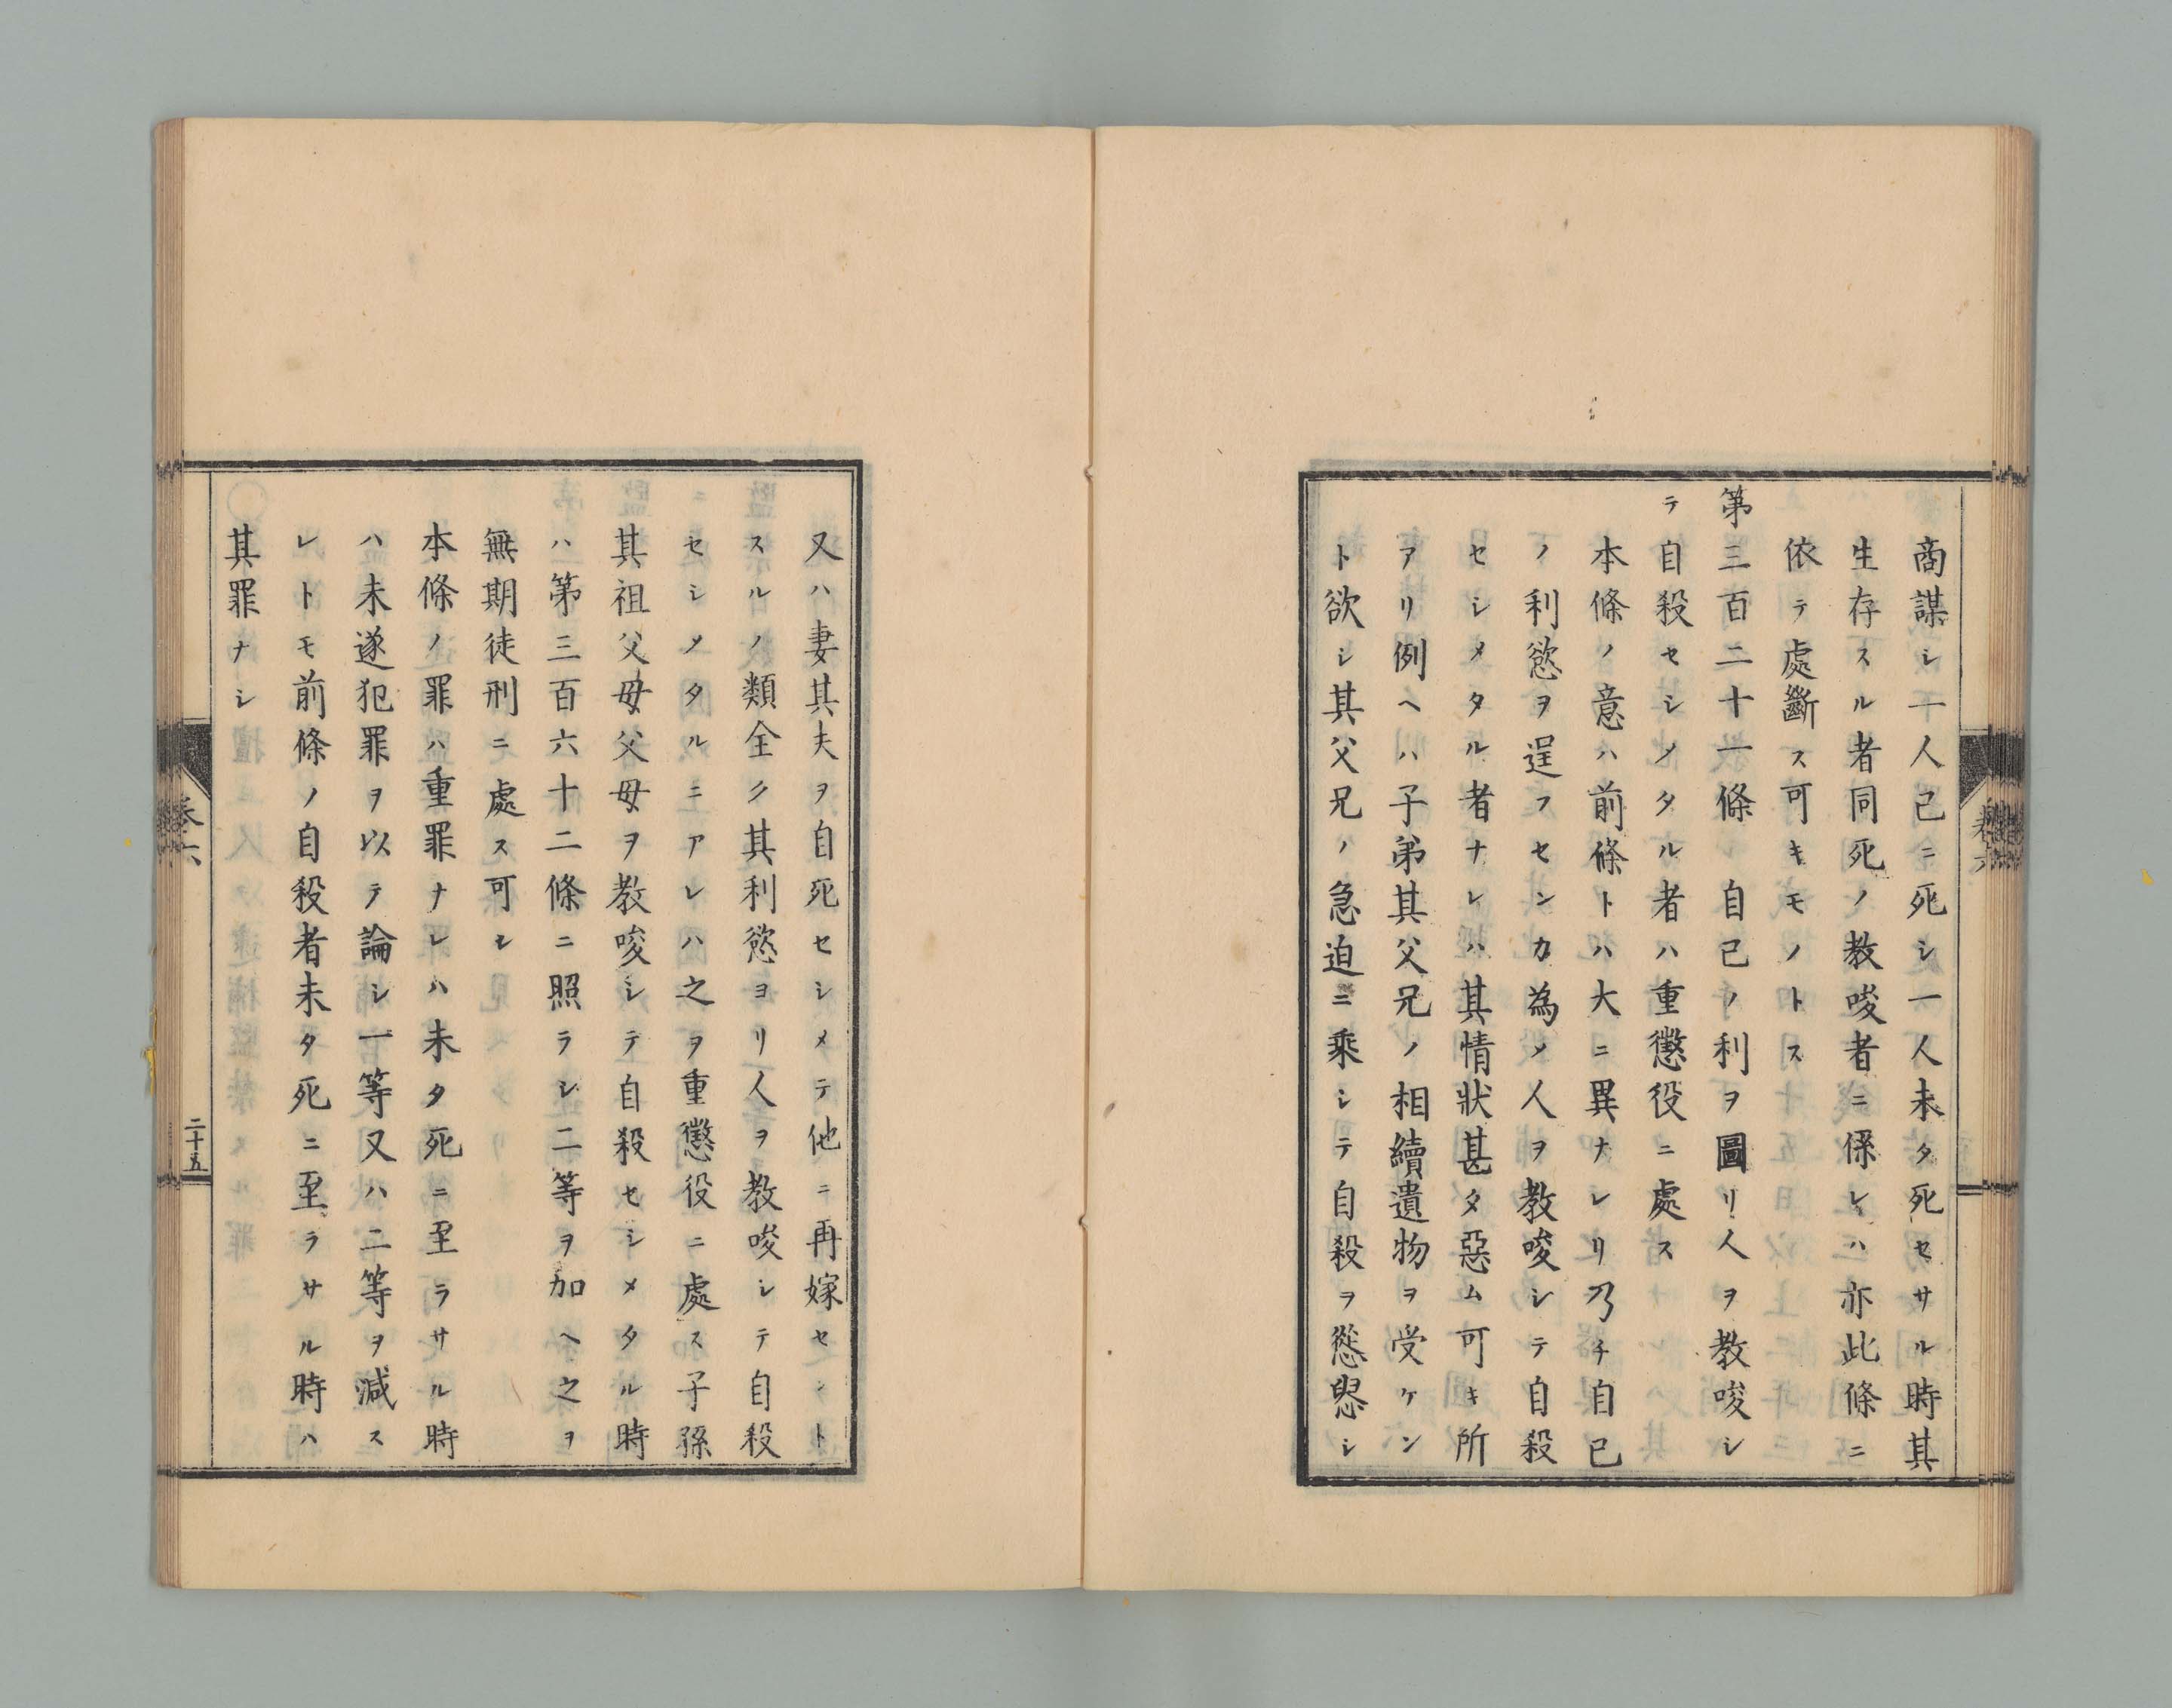 商謀シ一人已ニ死シ一人未タ死セサル時其
生存スル者同死ノ教唆者ニ係レハ亦此條ニ
依テ處斷ス可キモノトス
第三百二十一條 自己ノ利ヲ圖リ人ヲ教唆シ
テ自殺セシメタル者ハ重懲役ニ處ス
本條ノ意ハ前條トハ大ニ異ナレリ乃チ自己
ノ利慾ヲ逞フセンカ為メ人ヲ教唆シテ自殺
セシメタル者ナレハ其情狀甚タ惡ム可キ所
アリ例ヘハ子弟其父兄ノ相續遺物ヲ受ケン
ト欲シ其父兄ノ急迫ニ乘シテ自殺ヲ慫慂シ
又ハ妻其夫ヲ自死セシメテ他ニ再嫁セント
スルノ類全ク其利慾ヨリ人ヲ教唆シテ自殺
セシメタルニアレハ之ヲ重懲役ニ處ス子孫
其祖父母父母ヲ教唆シテ自殺セシメタル時
ハ第三百六十二條ニ照ラシ二等ヲ加ヘ之ヲ
無期徒刑ニ處ス可シ
本條ノ罪ハ重罪ナレハ未タ死ニ至ラサル時
ハ未遂犯罪ヲ以テ論シ一等又ハ二等ヲ減ス
レトモ前條ノ自殺者未タ死ニ至ラサル時ハ
其罪ナシ
卷六
二十五